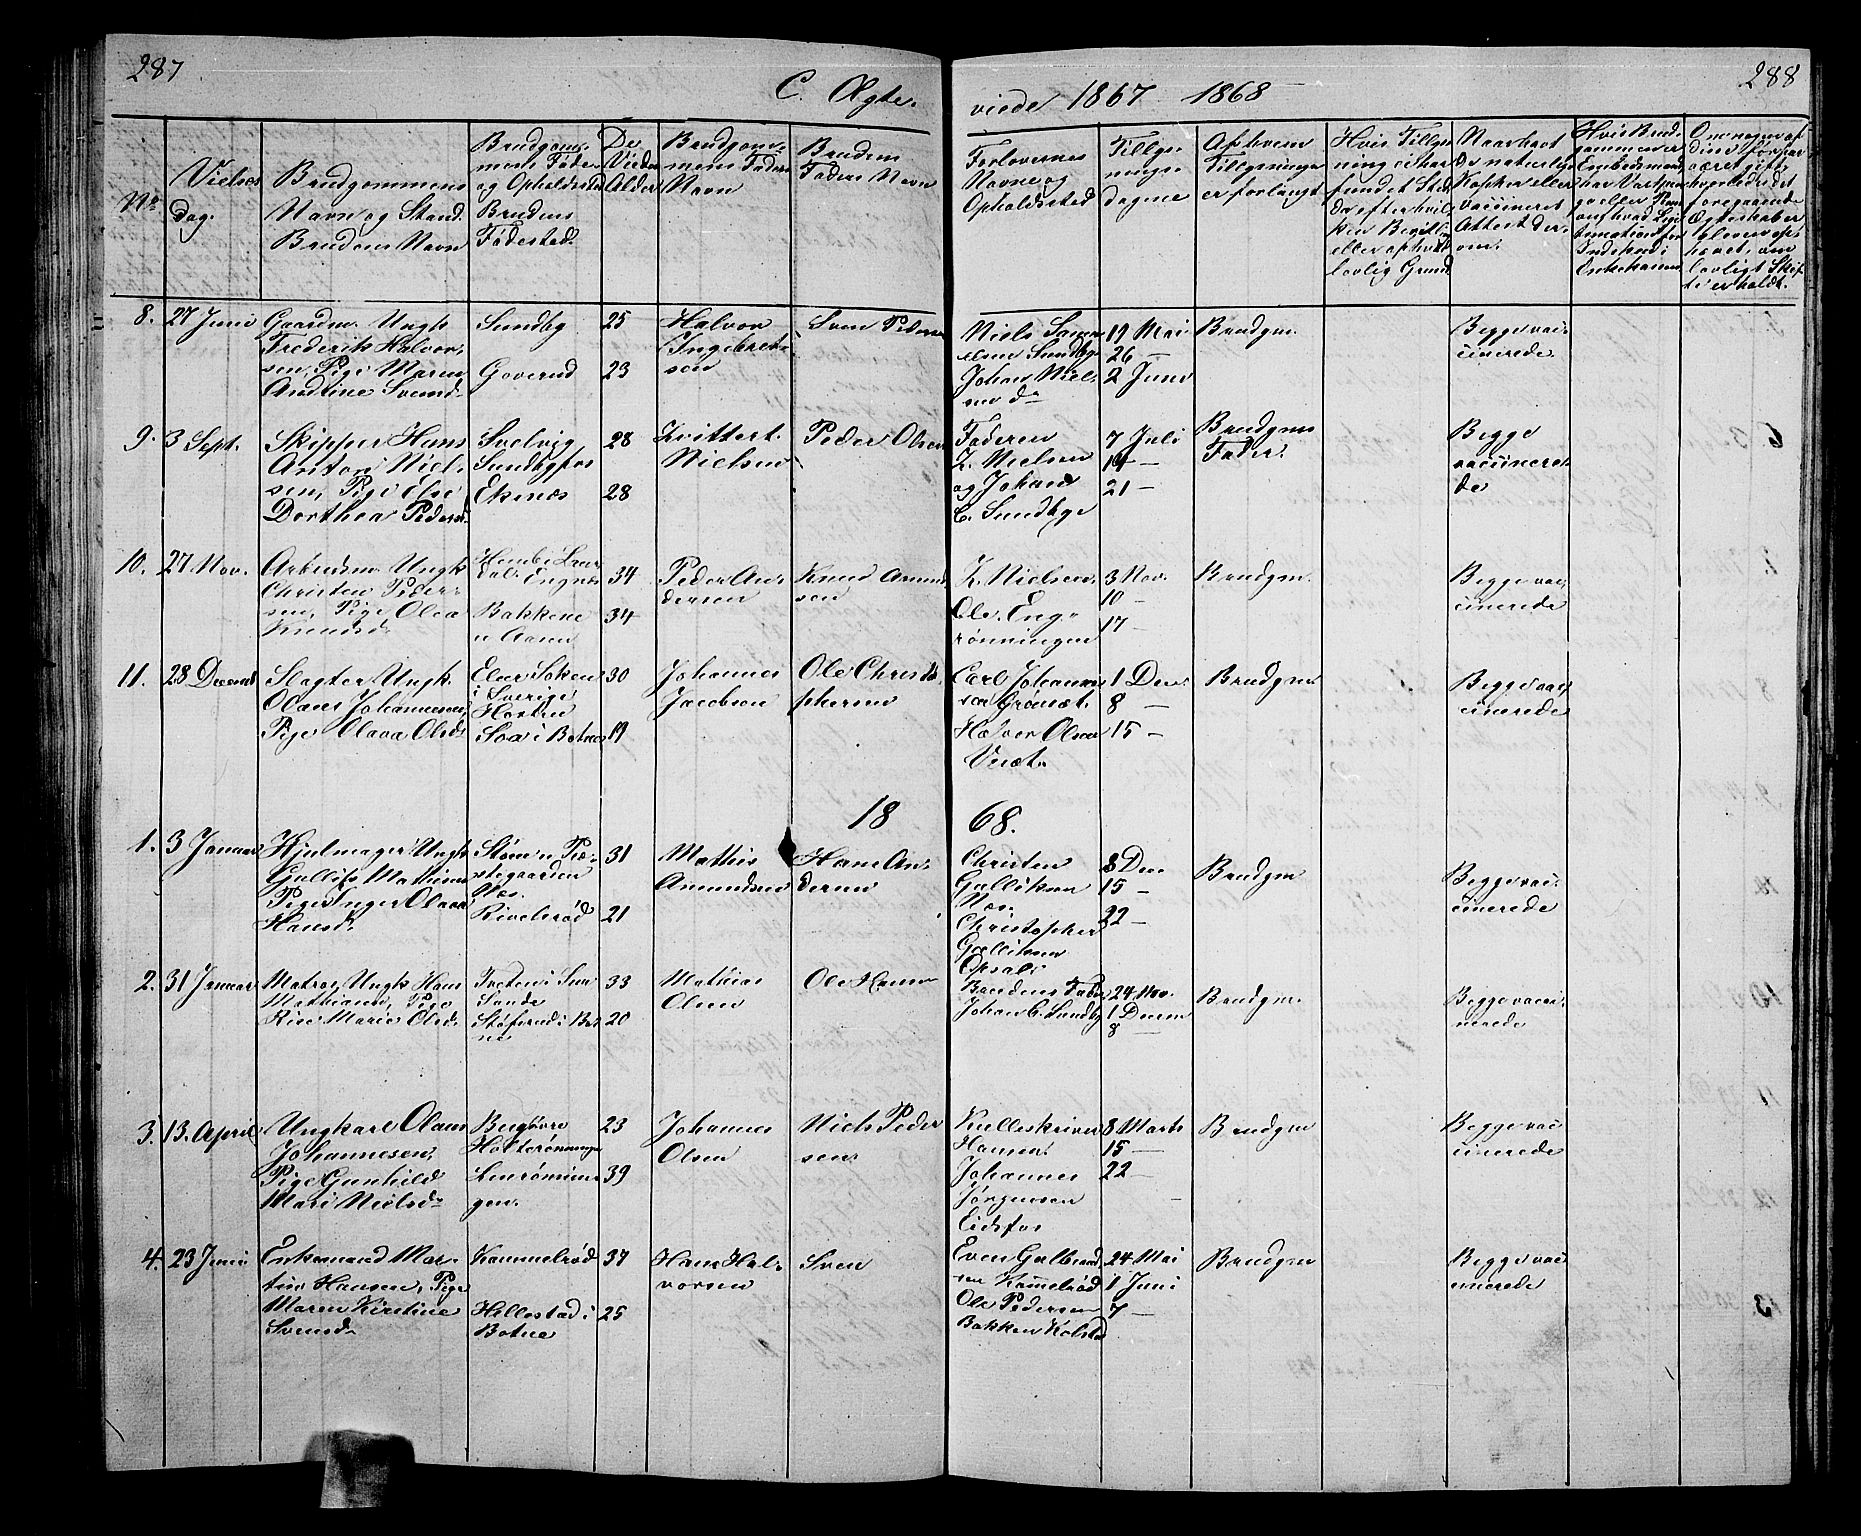 287
C. Ægte-
viede 1867 1868
288
No
Vielses
dag.
Brudgommens
Navn og Stand.
Brudens Navn
Brudgom-
mens Føde
og Opholdssted
Brudens
Fødested.
De
Viedes
Alder
Brudgom-
mens Faders
Navn
Brudens
Faders Navn
Forlovernes
Navne og
Opholdssted
Tillys-
nings-
dagene
Af hvem
Tillysningen
er forlangt
Hvis Tillys-
ning ei har
fundet Sted
da efter hvil-
ken Bevilling
eller anden
lovlig Grund
Naar havt
de naturlige
Kopper eller
vaccineret
Attest der-
om.
Hvis Brud-
gommen er
Embedsmand
8. 27 Juni
Gaardm. Ungk
Frederik Halvor-
sen, Pige Maren
Andtine Svensd.
Sundby
Goverud
25
23
Halvor
Ingebret-
sen
Sven Pedersen
Niels Sam-
elsen Sundby
Johan Niel-
sen do
19 Mai
26 —
2 Juni
Brudgm.
Begge vac-
cinerede.
9. 3 Sept.
Skipper Hans
Anton Niel-
sen, Pige Else
Dorthea Pedersd.
Svelvig
Sundbyfos
Eknæs
28
28
Zvittert
Nielsen
Peder Olsen
Faderen
Z. Nielsen
og Johan
C. Sundbye
7 Juli
14 —
21 —
Brudgms
Fader.
Begge
vaccinere-
de
10. 27 Nov.
Arbeidsm. Ungk
Christen Peder-
sen, Pige Olea
Knudsd.
Engnæs
Bakkene
34
34
Peder An-
dersen
Knud Amund
sen
Z. Nielsen,
Ole Eng-
rønningen
3 Nov.
10 —
17 —
Brudgm.
Begge vac-
cinerede
11. 28 Decemb
Slagter Ungk.
Olaus Johannesen,
Pige Olava Olsd.
i Sverige
i Botne
30
19
Johannes
Jacobsen
Ole Christo-
phersen
Carl Johannes
sen
Halvor Olsen
1 Dec
8 —
15 —
Brudgm
Begge vac-
cinerede
18 68.
1. 3 Januar
Hjulmager Ungk
Gullik Mathisen
Pige Inger Olava
Hansd.
Næs.
Rivelsrød
31
21
Mathis
Amundsen
Hans An-
dersen
Christen
Gulliksen
Næs.
Christopher
Gulliksen
Opsal.
8 Dec
15 —
22 —
Brudgm
Begge vac-
cinerede
2. 31 Januar
Matros, Ungk Hans
Mathisen, Pige
Rine Marie Olsd.
Sande
33
20
Mathias
Olsen
Ole Hansen
Brudens Fader
Johan C. Sundby
24 Nov.
1 Decem
8 —
Brudgm.
Begge vacci-
nerede
3. 13. April
Ungkarl Olaus
Johannesen,
Pige Gunhild
Mari Nielsd.
Holterønningen
Lærønnin-
gen.
23
39
Johannes
Olsen
Niels Peder
sen
Kulleskriver
Hansen
Johannes
Jørgensen
Eidsfos
8 Marts
15 —
22 —
Brudgm
Begge vac-
cinerede
4. 23 Juni
Enkemand Mar-
tin Hansen, Pige
Maren Kirstine
Svensd.
Kammelrød
Hillestad i
Botne
37
25
Hans Hal-
vorsen
Sven
Even Gulbrand
sen Kammelrød
Ole Pedersen
Bakken Kolstad
24 Mai
1 Juni
7 —
Brudgm
Begge vac-
cinerede